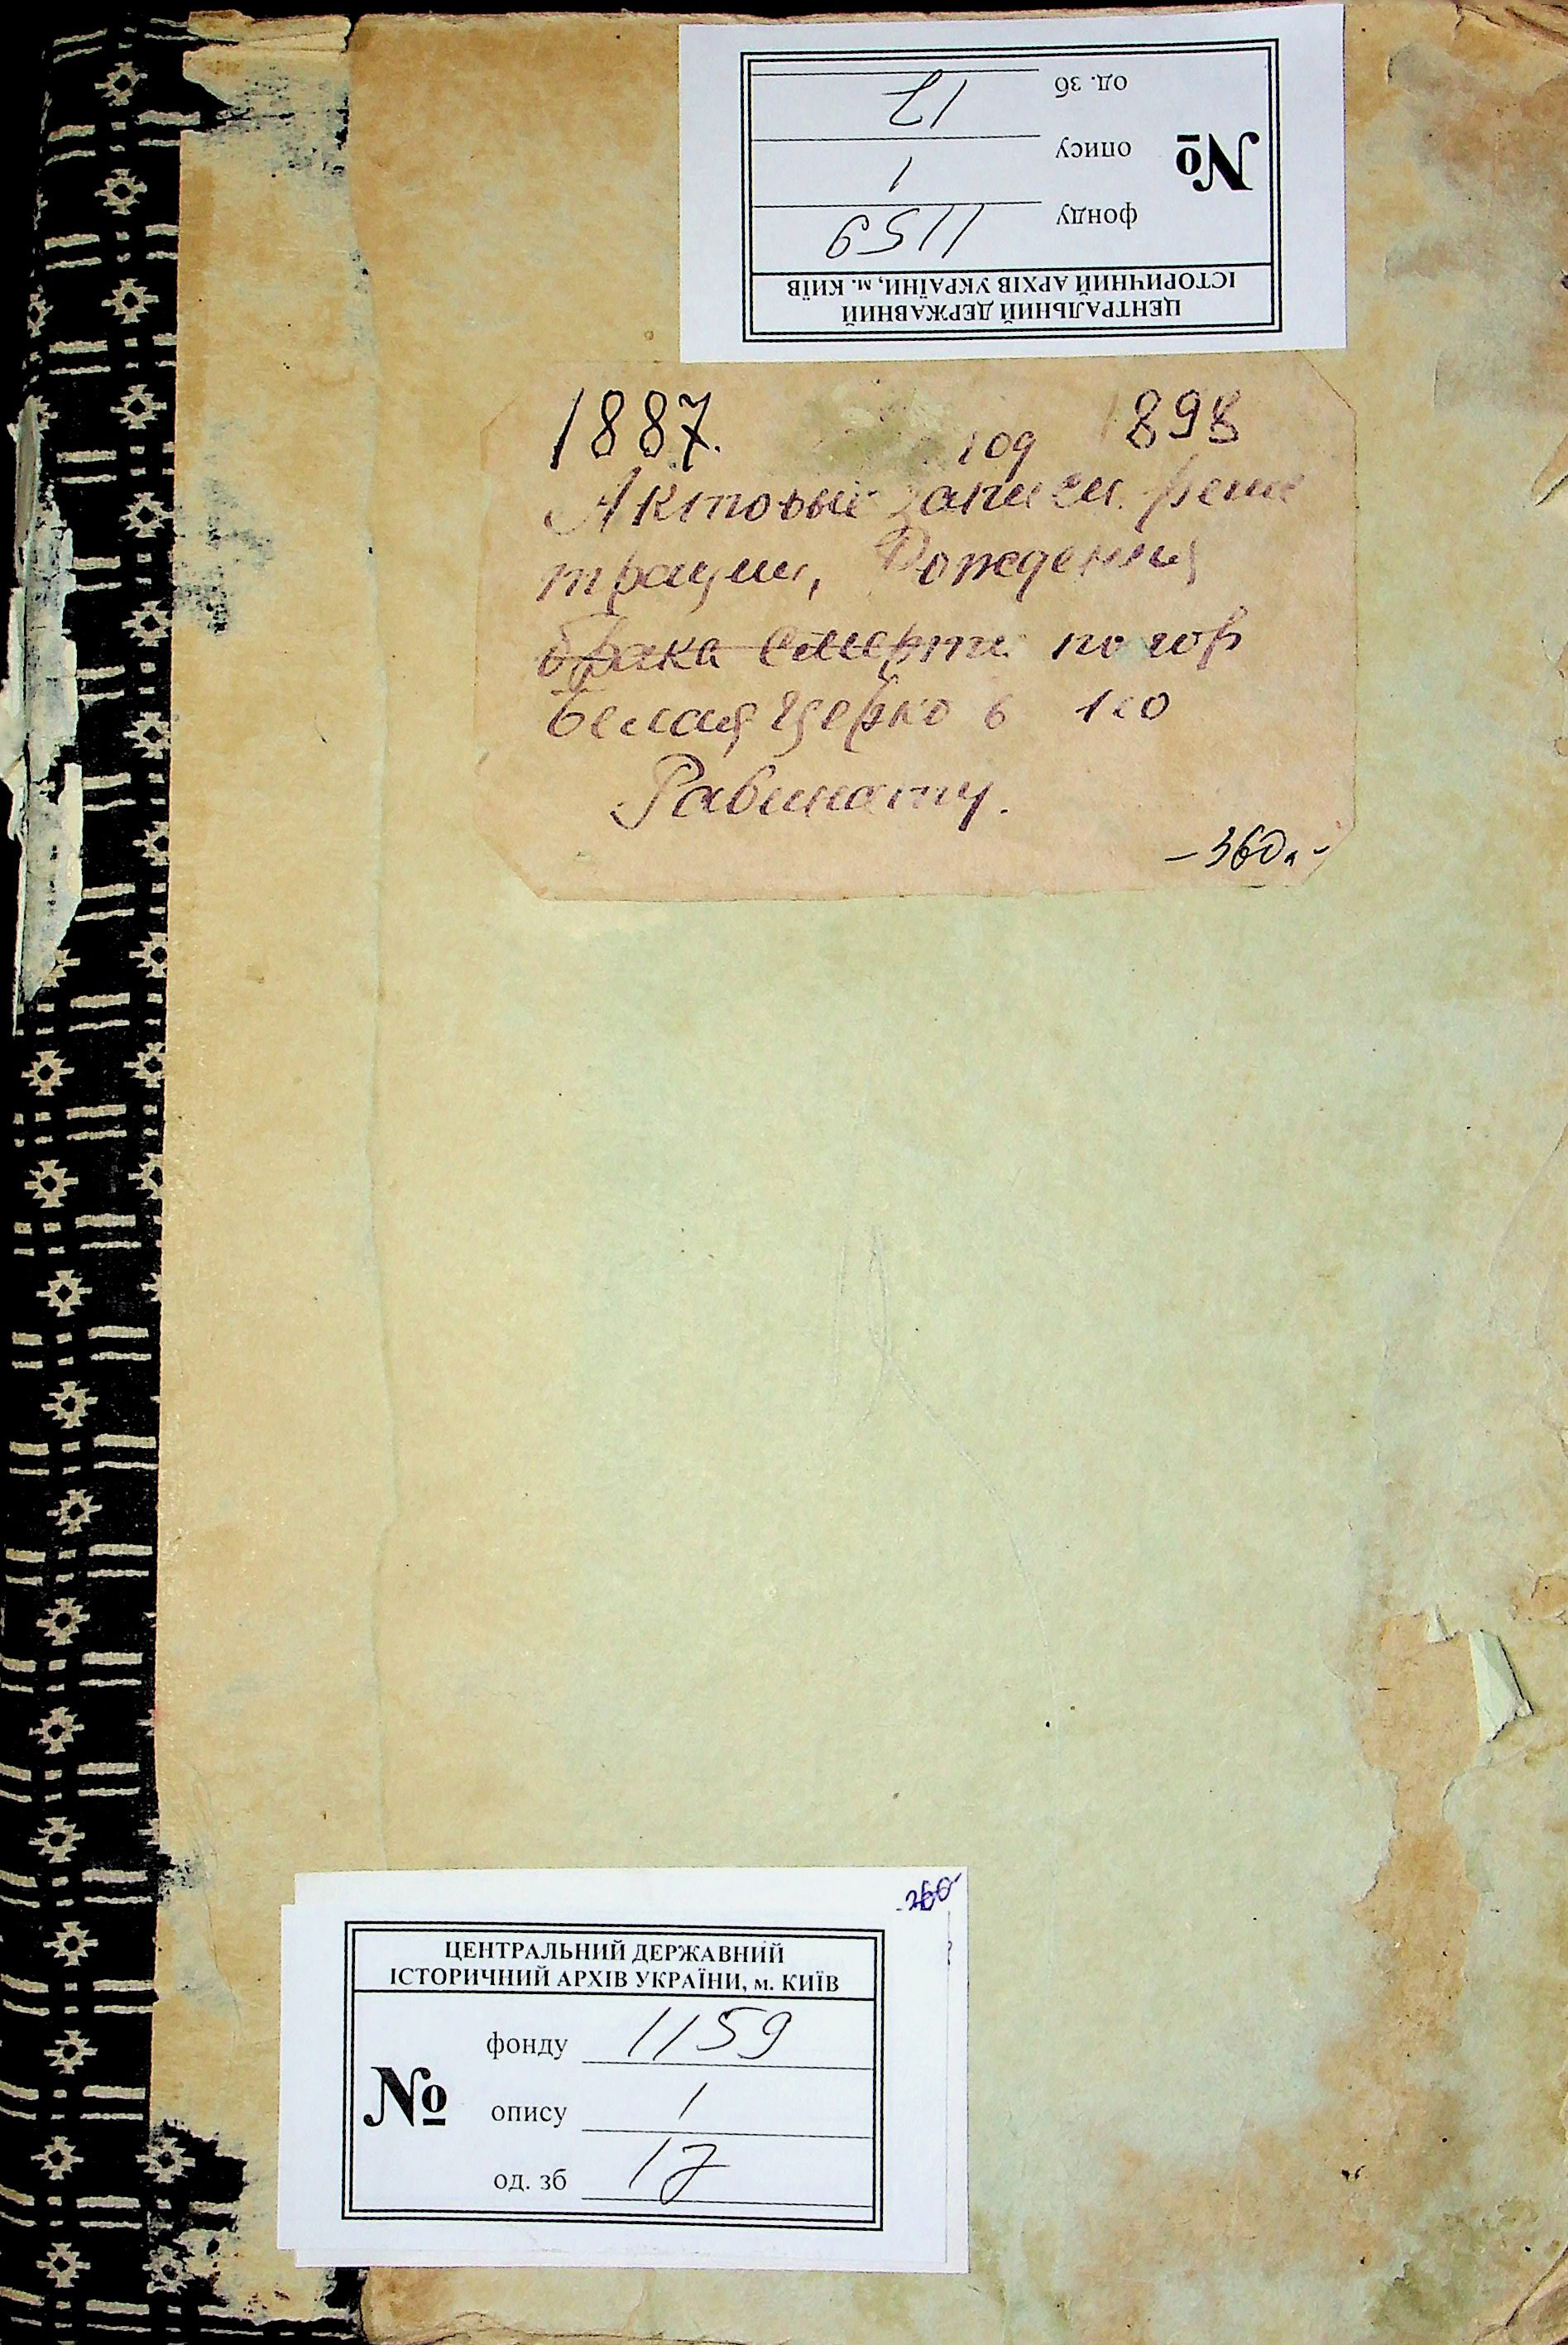 од. зб 17
№ опису 1
фонду 1159
ЦЕНТРАЛЬНИЙ ДЕРЖАВНИЙ
ІСТОРИЧНИЙ АРХІВ УКРАЇНИ, м. КИЇВ
1887. год 1898
Актовые записи
Рождения
брака смерти по гор
Белая Церковь
Равинату.
ЦЕНТРАЛЬНИЙ ДЕРЖАВНИЙ
ІСТОРИЧНИЙ АРХІВ УКРАЇНИ, м. КИЇВ
фонду 1159
№ опису 1
од. зб 17